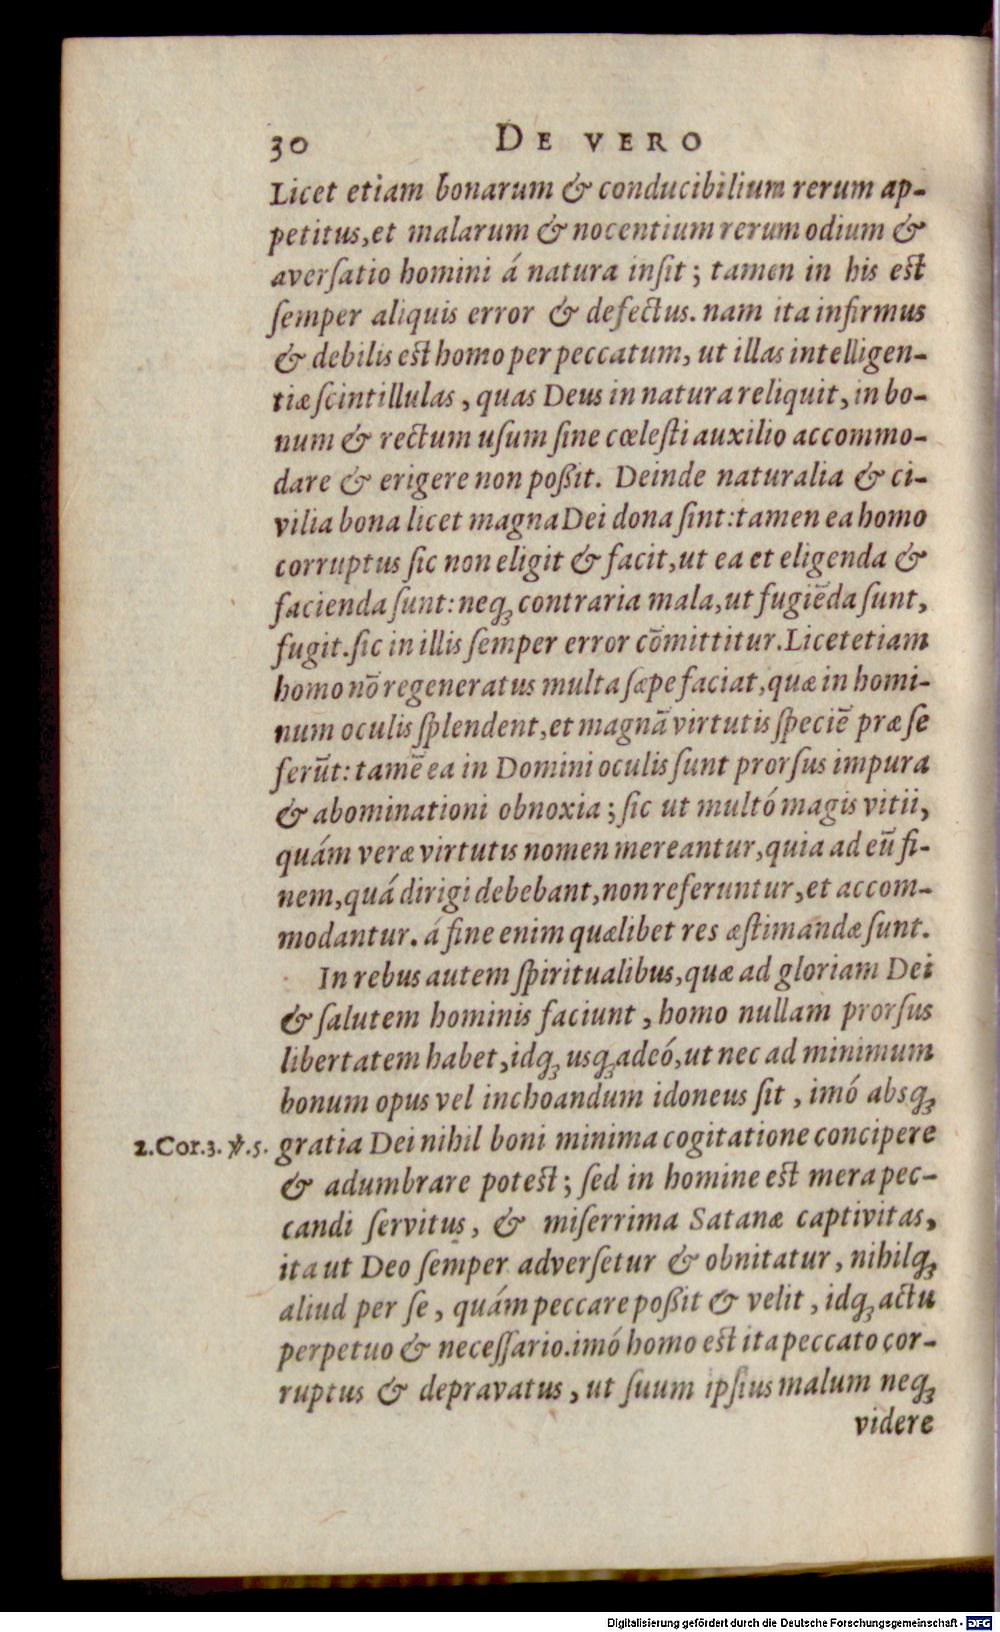 30 DE VERO
Licet etiam bonarum & conducibilium rerum ap-
petitus, et malarum & nocentium rerum odium &
averſatio homini á natura inſit; tamen in his eſt
ſemper aliquis error & defectus. nam ita infirmus
& debilis eſt homo per peccatum, ut illas intelligen-
tiæ ſcintillulas, quas Deus in natura reliquit, in bo-
num & rectum uſum ſine cœleſti auxilio accommo-
dare & erigere non poßit. Deinde naturalia & ci-
vilia bona licet magna Dei dona ſint: tamen ea homo
corruptus ſic non eligit & facit, ut ea et eligenda &
facienda ſunt: neqꝫ contraria mala, ut fugiēda ſunt,
fugit. ſic in illis ſemper error cōmittitur. Licet etiam
homo nō regeneratus multa ſæpe faciat, quæ in homi-
num oculis ſplendent, et magnā virtutis ſpeciē præ ſe
ferūt: tamē ea in Domini oculis ſunt prorſus impura
& abominationi obnoxia; ſic ut multó magis vitii,
quám veræ virtutis nomen mereantur, quia ad eū fi-
nem, quá dirigi debebant, non referuntur, et accom-
modantur. á fine enim quælibet res æſtimandæ ſunt.
In rebus autem ſpiritualibus, quæ ad gloriam Dei
& ſalutem hominis faciunt, homo nullam prorſus
libertatem habet, idqꝫ usqꝫ adeó, ut nec ad minimum
bonum opus vel inchoandum idoneus ſit, imó absqꝫ
2. Cor. 3. ℣. 5. gratia Dei nihil boni minima cogitatione concipere
& adumbrare poteſt; ſed in homine eſt mera pec-
candi ſervitus, & miſerrima Satanæ captivitas,
ita ut Deo ſemper adverſetur & obnitatur, nihilqꝫ
aliud per ſe, quám peccare poßit & velit, idqꝫ actu
perpetuo & neceſſario. imó homo eſt ita peccato cor-
ruptus & depravatus, ut ſuum ipſius malum neqꝫ
videre
Digitalisierung gefördert durch die Deutsche Forschungsgemeinschaft - DFG